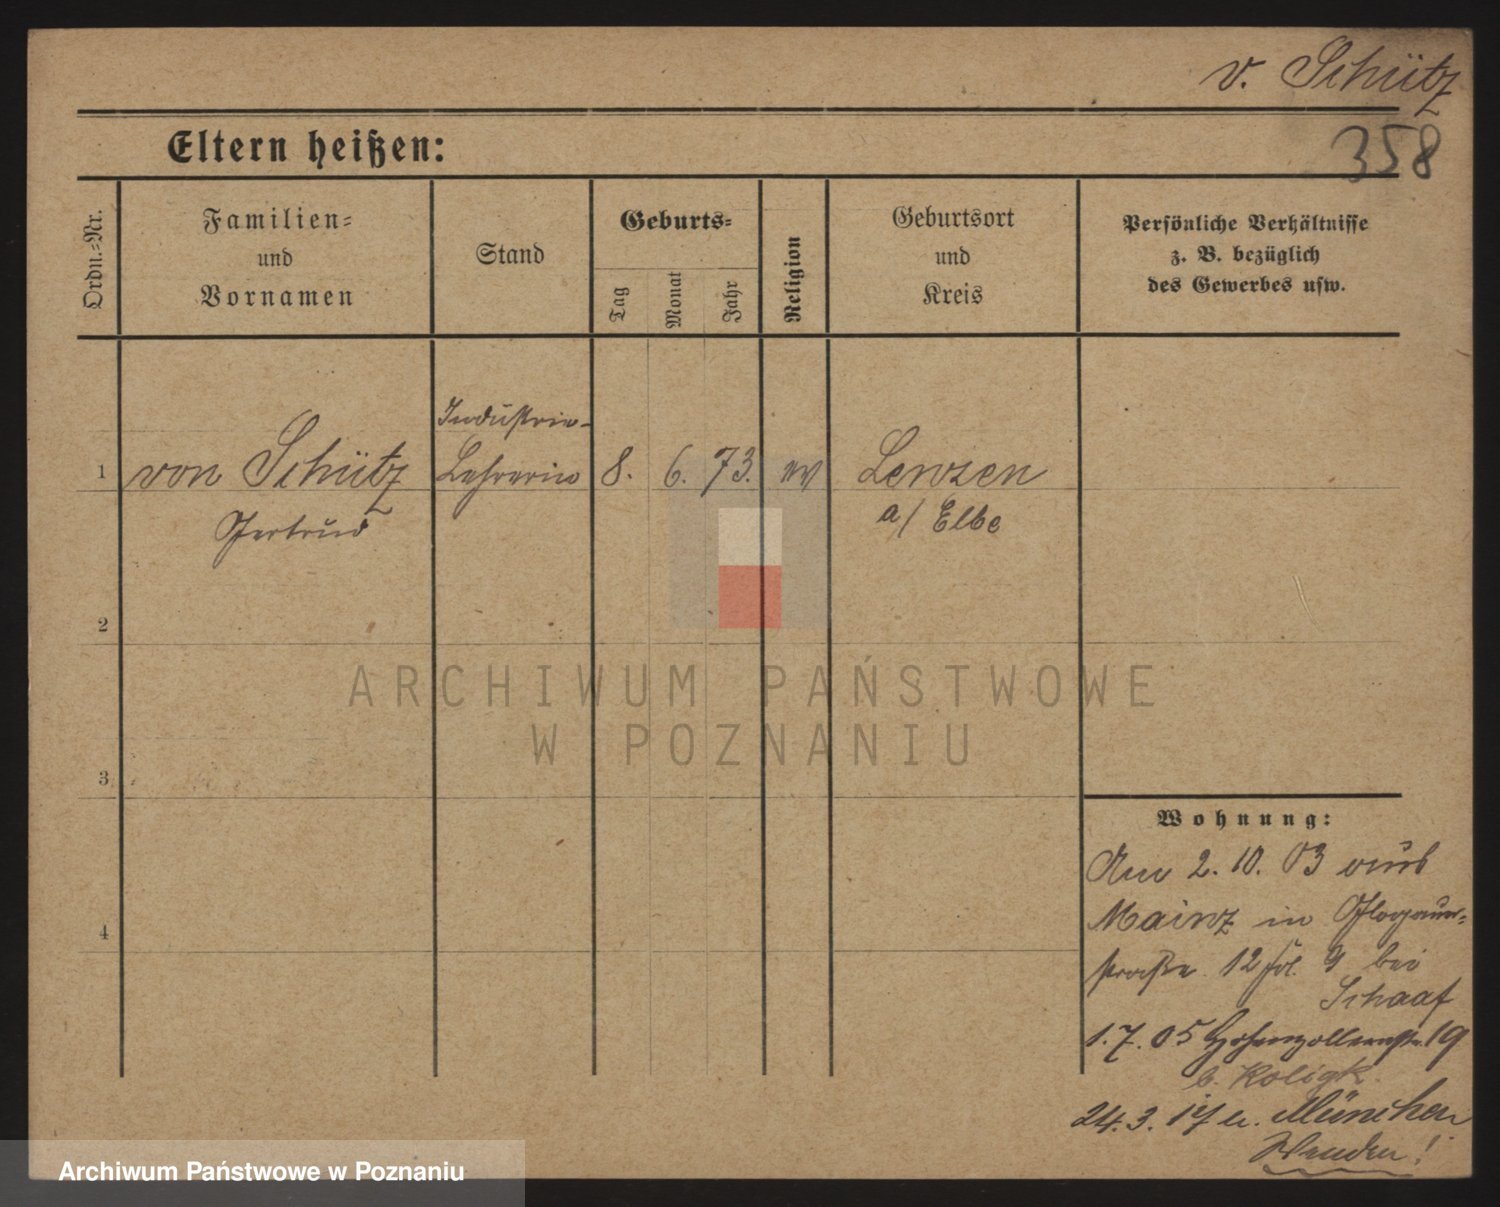 v. Schütz
358
Eltern heißen:
Ordn.-Nr.
Familien-
und
Vornamen
Stand
Geburts-
Tag
Monat
Jahr
Religion
Geburtsort
und
Kreis
Persönliche Verhältnisse
z. B. bezüglich
des Gewerbes usw.
Industrie-
1 von Schütz Lehrerin 8. 6. 73. ev Lenzen
Gertrud a/ Elbe
2
3
4
Wohnung:
Am 2. 10. 03 aus
Mainz in Glogauer-
straße 12 bei
Schaaf
1. 7. 05 Hohenzollernstr. 19
b. Koligk.
24. 3. 17 n. München
Wenden!
ARCHIWUM PAŃSTWOWE
W POZNANIU
Archiwum Państwowe w Poznaniu